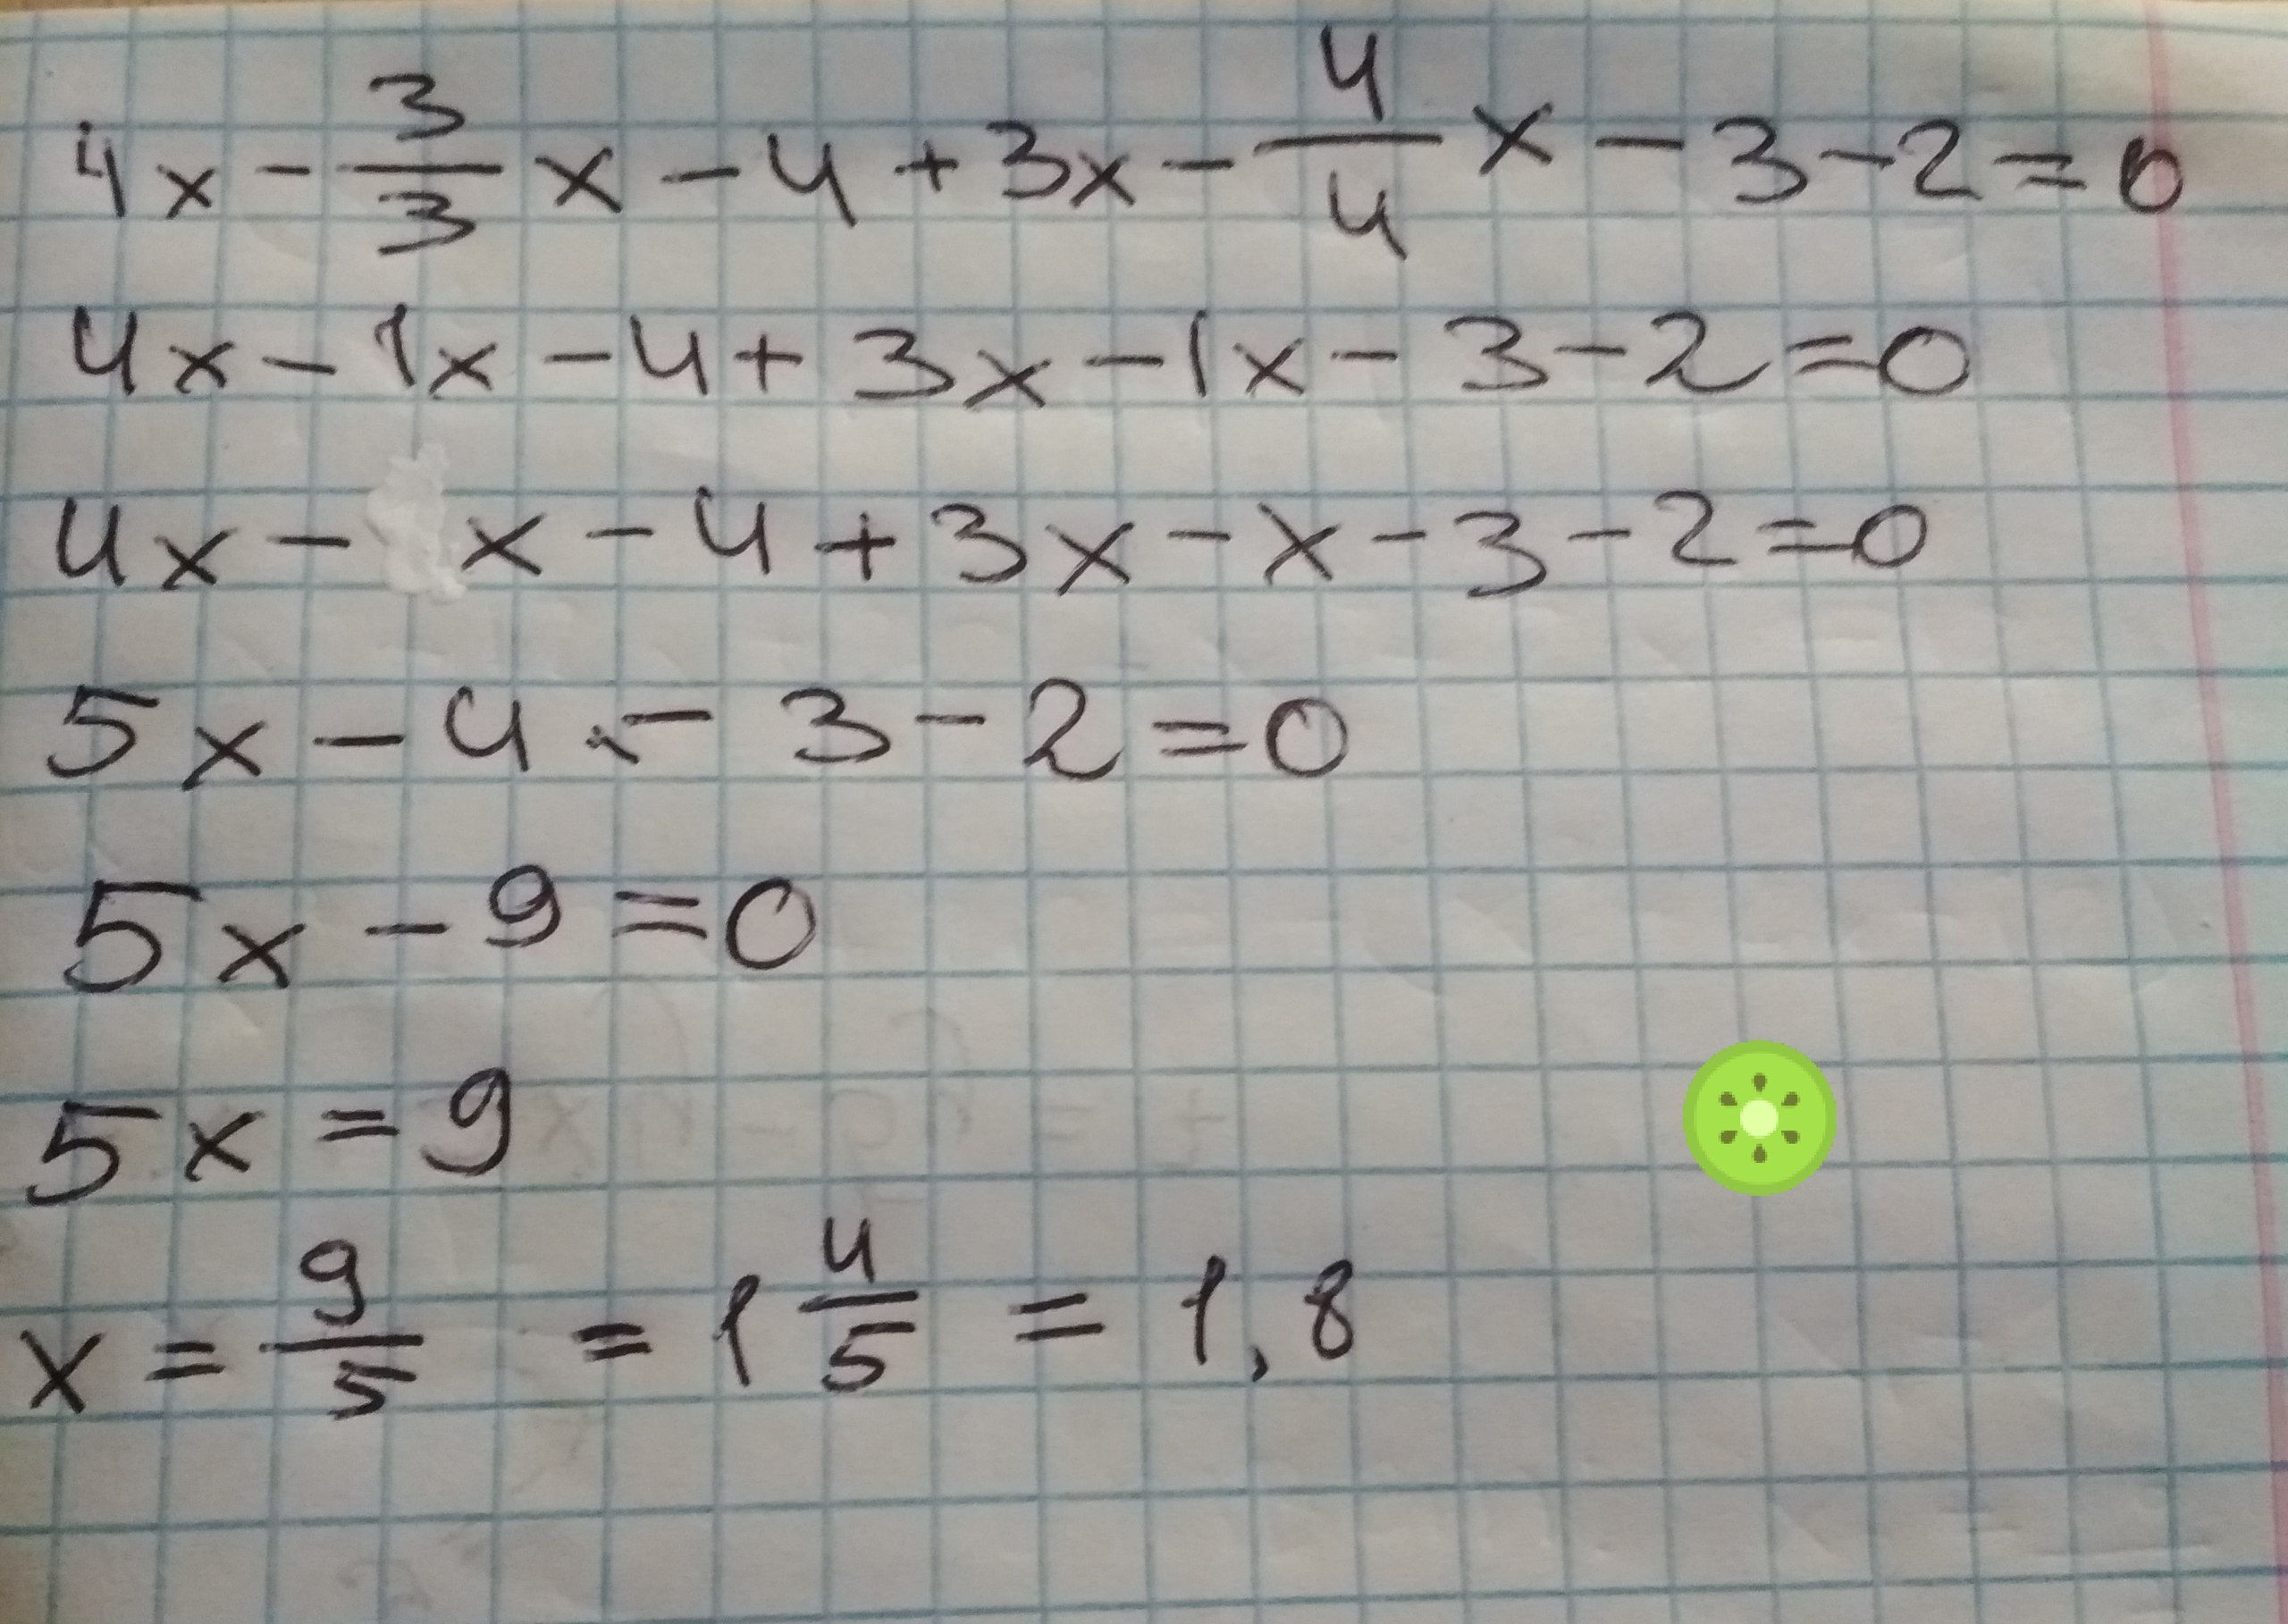 4x - 3/3 x - 4 + 3x - 4/4 x - 3 - 2 = 0
4x - 1x - 4 + 3x - 1x - 3 - 2 = 0
4x - x - 4 + 3x - x - 3 - 2 = 0
5x - 4 - 3 - 2 = 0
5x - 9 = 0
5x = 9
x = 9/5 = 1 4/5 = 1,8